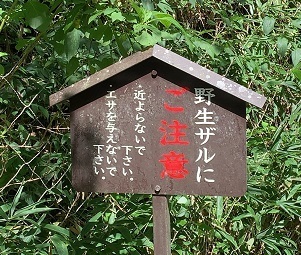 野生ザルに
ご注意
・近よらないで
下さい。
・エサを与えないで
下さい。